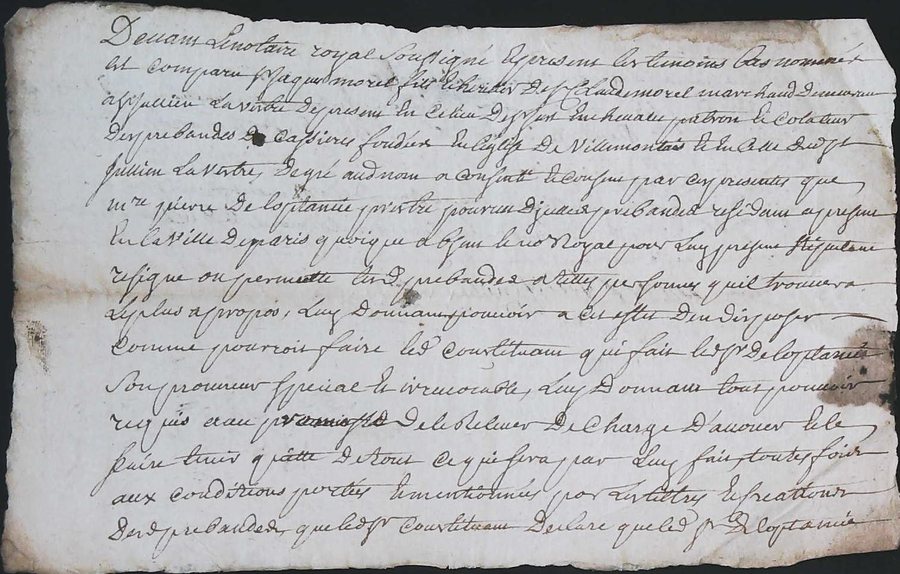 Devant Lenotaire royal Soussigné et present les temoins bas nommés
est comparu Jaques morel fils et heritier de Sr Claude morel marchand demeurant
a St Jullien Lavestre de present en ce lieu de patron et colateur
des prebandes de Cassieres fondées en leglise de Villemontais et en Celle dud St
Jullien Lavestre, de gré aud nom a Consenti et Consent par ces presentes que
mre pierre De loptamie prestre pourvu desdites prebandes residant a present
En laVille de paris quoique absent le no Royal pour Luy present Stipulant
resigne ou permutte lesd prebandes a telles personnes quil trouvera
le plus a propos, Luy Donnant pouvoir a cet effet den disposer
comme pourroit faire led Constituant qui fait led Sr de loptamie
Son procureur Special et irrevocable, Luy Donnant tout pouvoir
requis avec de le Relever De Charge D'avouer et le
faire tenir quitte De tout ce qui sera par Luy fait, toutes fois
aux conditions portées et mentionnées par les tiltres et
Desd prebandes, que led Sr Constituant Declare que led Sr De loptamie